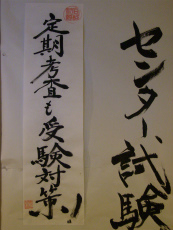 センター試験
定期考査も受験対策!!